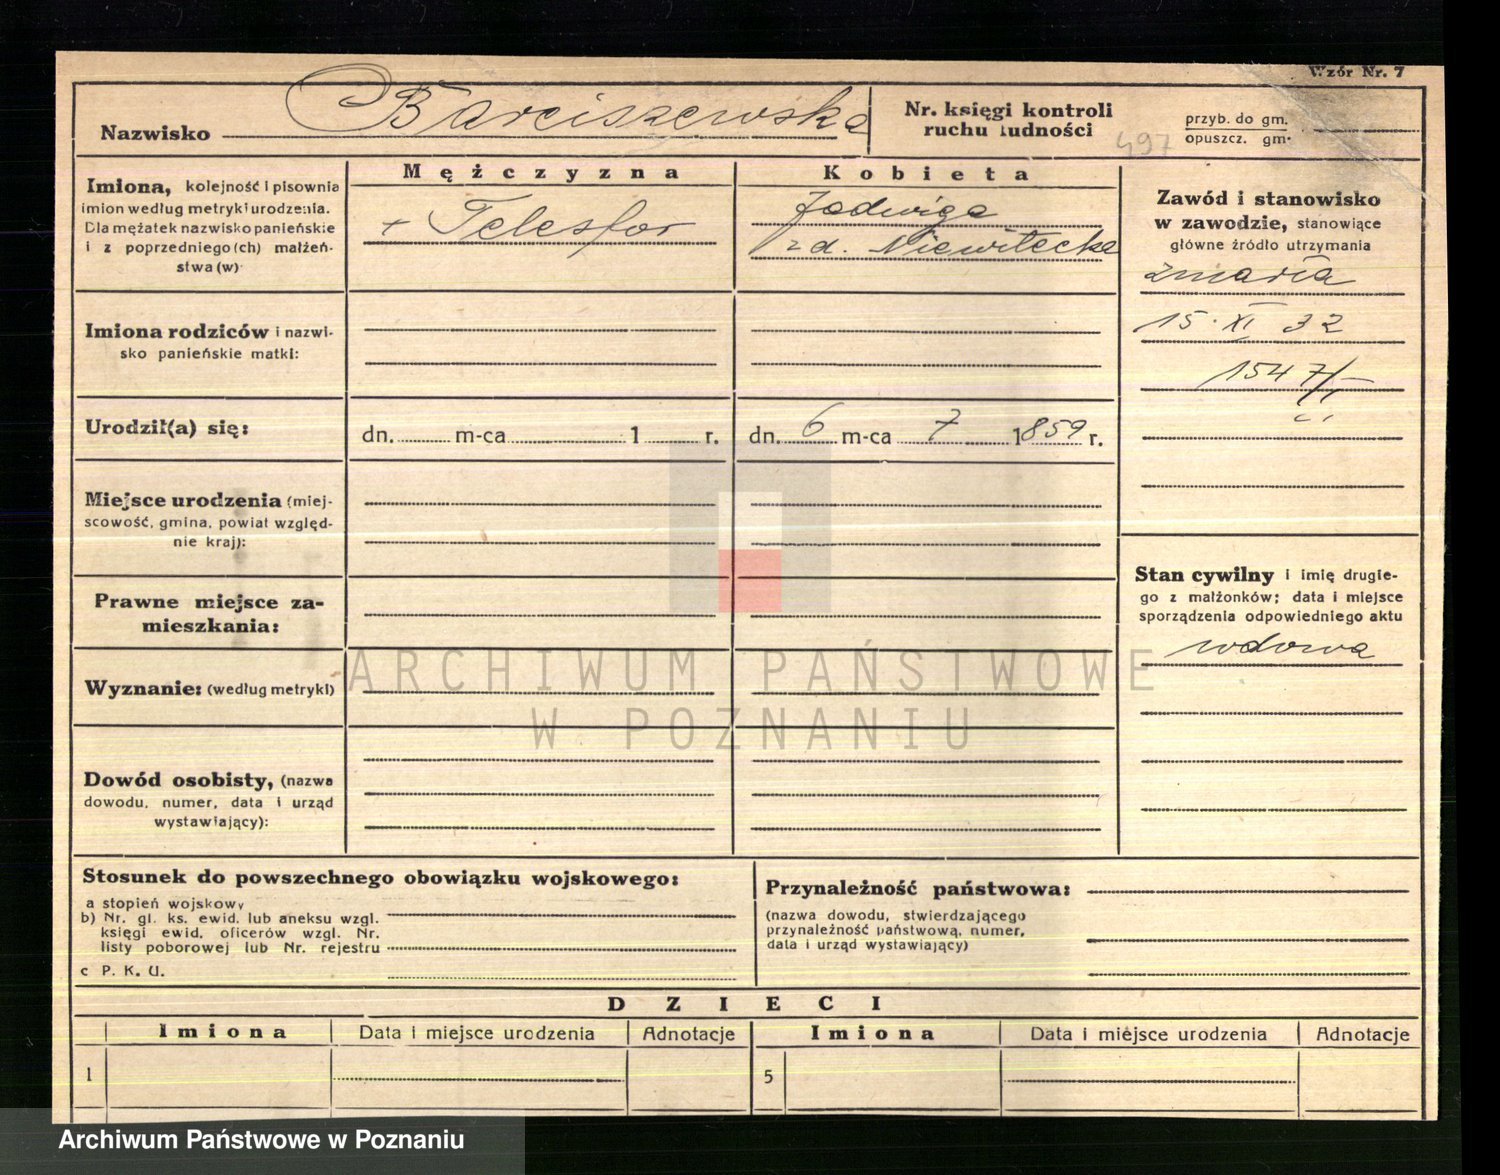 Wzór Nr. 7
Nazwisko Barciszewska
Nr. księgi kontroli
ruchu ludności
przyb. do gm.
opuszcz. gm.
497
Imiona, kolejność i pisownia
imion według metryki urodzenia.
Dla mężatek nazwisko panieńskie
i z poprzedniego(ch) małżeń-
stwa(w)
Mężczyzna
+ Telesfor
Kobieta
Jadwiga
zd. Niewitecka
Zawód i stanowisko
w zawodzie, stanowiące
główne źródło utrzymania
zmarła
15. XI 32
1547/
Imiona rodziców i nazwi-
sko panieńskie matki:
Urodził(a) się:
dn. m-ca 1 r.
dn. 6 m-ca 7 1859 r.
Miejsce urodzenia (miej-
scowość, gmina, powiat względ-
nie kraj):
Stan cywilny i imię drugie-
go z małżonków; data i miejsce
sporządzenia odpowiedniego aktu
wdowa
Prawne miejsce za-
mieszkania:
Wyznanie: (według metryki)
ARCHIWUM PAŃSTWOWE
W POZNANIU
Dowód osobisty, (nazwa
dowodu, numer, data i urząd
wystawiający):
Stosunek do powszechnego obowiązku wojskowego:
a stopień wojskowy
b) Nr. gl. ks. ewid. lub aneksu wzgl.
księgi ewid. oficerów wzgl. Nr.
listy poborowej lub Nr. rejestru
c P. K. U.
Przynależność państwowa:
(nazwa dowodu, stwierdzającego
przynależność państwową, numer,
data i urząd wystawiający)
DZIECI
Imiona Data i miejsce urodzenia Adnotacje Imiona Data i miejsce urodzenia Adnotacje
1 5
Archiwum Państwowe w Poznaniu